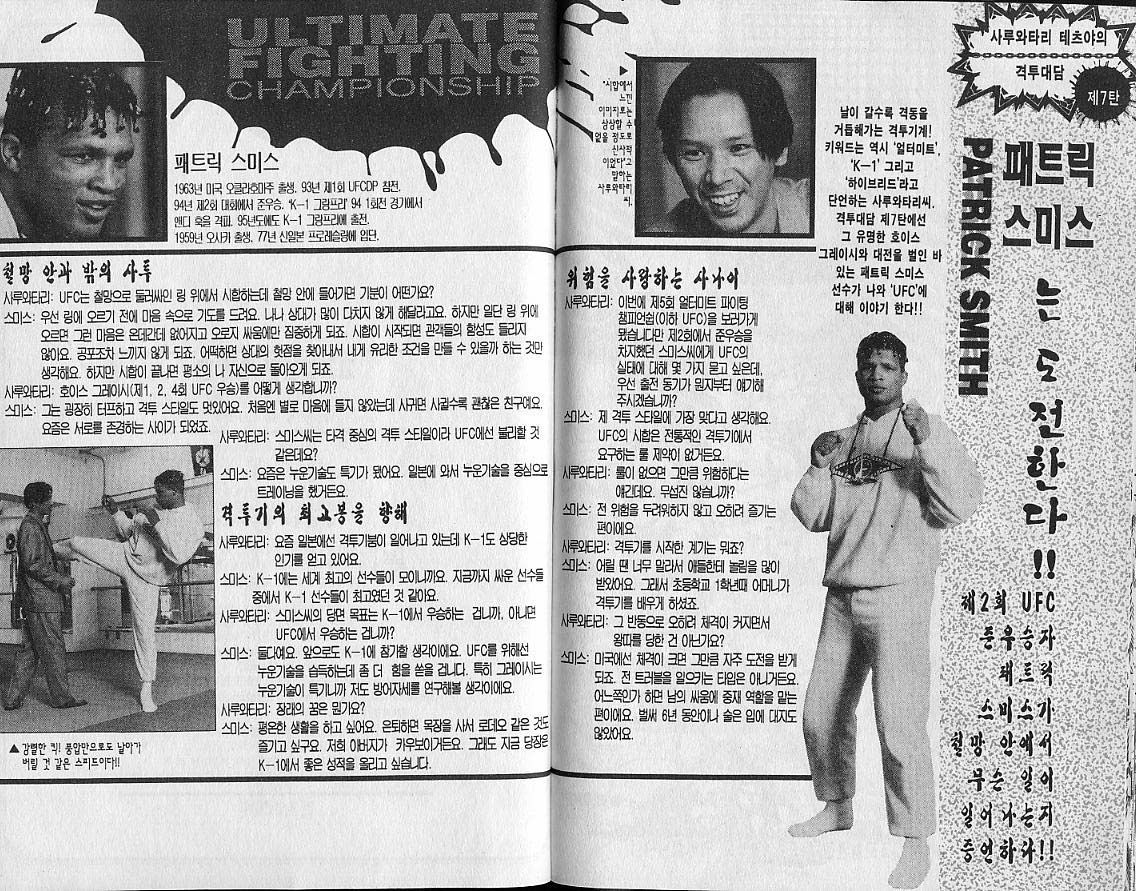 사루와타리 테츠야의
격투대담
제7탄
패트릭
스미스
는 도전한다!!
PATRICK SMITH
제2회 UFC
준우승자
패트릭
스미스가
철망 안에서
무슨 일이
일어나는지
증언하다!!
날이 갈수록 격동을
거듭해가는 격투기계!
키워드는 역시 '얼터미트',
'K-1' 그리고
'하이브리드'라고
단언하는 사루와타리씨.
격투대담 제7탄에선
그 유명한 호이스
그레이시와 대전을 벌인 바
있는 패트릭 스미스
선수가 나와 'UFC'에
대해 이야기 한다!!
▶
"시합에서
느낀
이미지로는
상상할 수
없을 정도로
신사적
이었다"고
말하는
사루와타리
씨.
위험을 사랑하는 사나이
사루와타리: 이번에 제5회 얼터미트 파이팅
챔피언쉽(이하 UFC)을 보러가게
됐습니다만 제2회에서 준우승을
차지했던 스미스씨에게 UFC의
실태에 대해 몇 가지 묻고 싶은데,
우선 출전 동기가 뭔지부터 얘기해
주시겠습니까?
스미스: 제 격투 스타일에 가장 맞다고 생각해요.
UFC의 시합은 전통적인 격투기에서
요구하는 룰 제약이 없거든요.
사루와타리: 룰이 없으면 그만큼 위험하다는
얘긴데요. 무섭진 않습니까?
스미스: 전 위험을 두려워하지 않고 오히려 즐기는
편이에요.
사루와타리: 격투기를 시작한 계기는 뭐죠?
스미스: 어릴 땐 너무 말라서 애들한테 놀림을 많이
받았어요. 그래서 초등학교 1학년때 어머니가
격투기를 배우게 하셨죠.
사루와타리: 그 반동으로 오히려 체격이 커지면서
왕따를 당한 건 아닌가요?
스미스: 미국에선 체격이 크면 그만큼 자주 도전을 받게
되죠. 전 트러블을 일으키는 타입은 아니거든요.
어느쪽인가 하면 남의 싸움에 중재 역할을 맡는
편이에요. 벌써 6년 동안이나 술은 입에 대지도
않았어요.
ULTIMATE
FIGHTING
CHAMPIONSHIP
패트릭 스미스
1963년 미국 오클라호마주 출생. 93년 제1회 UFC에 참전.
94년 제2회 대회에서 준우승. 'K-1 그랑프리' 94 1회전 경기에서
앤디 훅을 격파. 95년도에도 K-1 그랑프리에 출전.
1959년 오사카 출생. 77년 신일본 프로레슬링에 입단.
철망 안과 밖의 사투
사루와타리: UFC는 철망으로 둘러싸인 링 위에서 시합하는데 철망 안에 들어가면 기분이 어떤가요?
스미스: 우선 링에 오르기 전에 마음 속으로 기도를 드려요. 나나 상대가 많이 다치지 않게 해달라고요. 하지만 일단 링 위에
오르면 그런 마음은 온데간데 없어지고 오로지 싸움에만 집중하게 되죠. 시합이 시작되면 관객들의 함성도 들리지
않아요. 공포조차 느끼지 않게 되죠. 어떡하면 상대의 헛점을 찾아내서 내게 유리한 조건을 만들 수 있을까 하는 것만
생각해요. 하지만 시합이 끝나면 평소의 나 자신으로 돌아오게 되죠.
사루와타리: 호이스 그레이시(제1, 2, 4회 UFC 우승)를 어떻게 생각합니까?
스미스: 그는 굉장히 터프하고 격투 스타일도 멋있어요. 처음엔 별로 마음에 들지 않았는데 사귀면 사귈수록 괜찮은 친구예요.
요즘은 서로를 존경하는 사이가 되었죠.
사루와타리: 스미스씨는 타격 중심의 격투 스타일이라 UFC에선 불리할 것
같은데요?
스미스: 요즘은 누운기술도 특기가 됐어요. 일본에 와서 누운기술을 중심으로
트레이닝을 했거든요.
격투기의 최고봉을 향해
사루와타리: 요즘 일본에선 격투기붐이 일어나고 있는데 K-1도 상당한
인기를 얻고 있어요.
스미스: K-1에는 세계 최고의 선수들이 모이니까요. 지금까지 싸운 선수들
중에서 K-1 선수들이 최고였던 것 같아요.
사루와타리: 스미스씨의 당면 목표는 K-1에서 우승하는 겁니까, 아니면
UFC에서 우승하는 겁니까?
스미스: 둘다예요. 앞으로도 K-1에 참가할 생각이에요. UFC를 위해선
누운기술을 습득하는데 좀 더 힘을 쏟을 겁니다. 특히 그레이시는
누운기술이 특기니까 저도 방어자세를 연구해볼 생각이에요.
사루와타리: 장래의 꿈은 뭔가요?
스미스: 평온한 생활을 하고 싶어요. 은퇴하면 목장을 사서 로데오 같은 것도
즐기고 싶구요. 저희 아버지가 카우보이거든요. 그래도 지금 당장은
K-1에서 좋은 성적을 올리고 싶습니다.
▲ 강렬한 킥! 풍압만으로도 날아가
버릴 것 같은 스피드이다!!